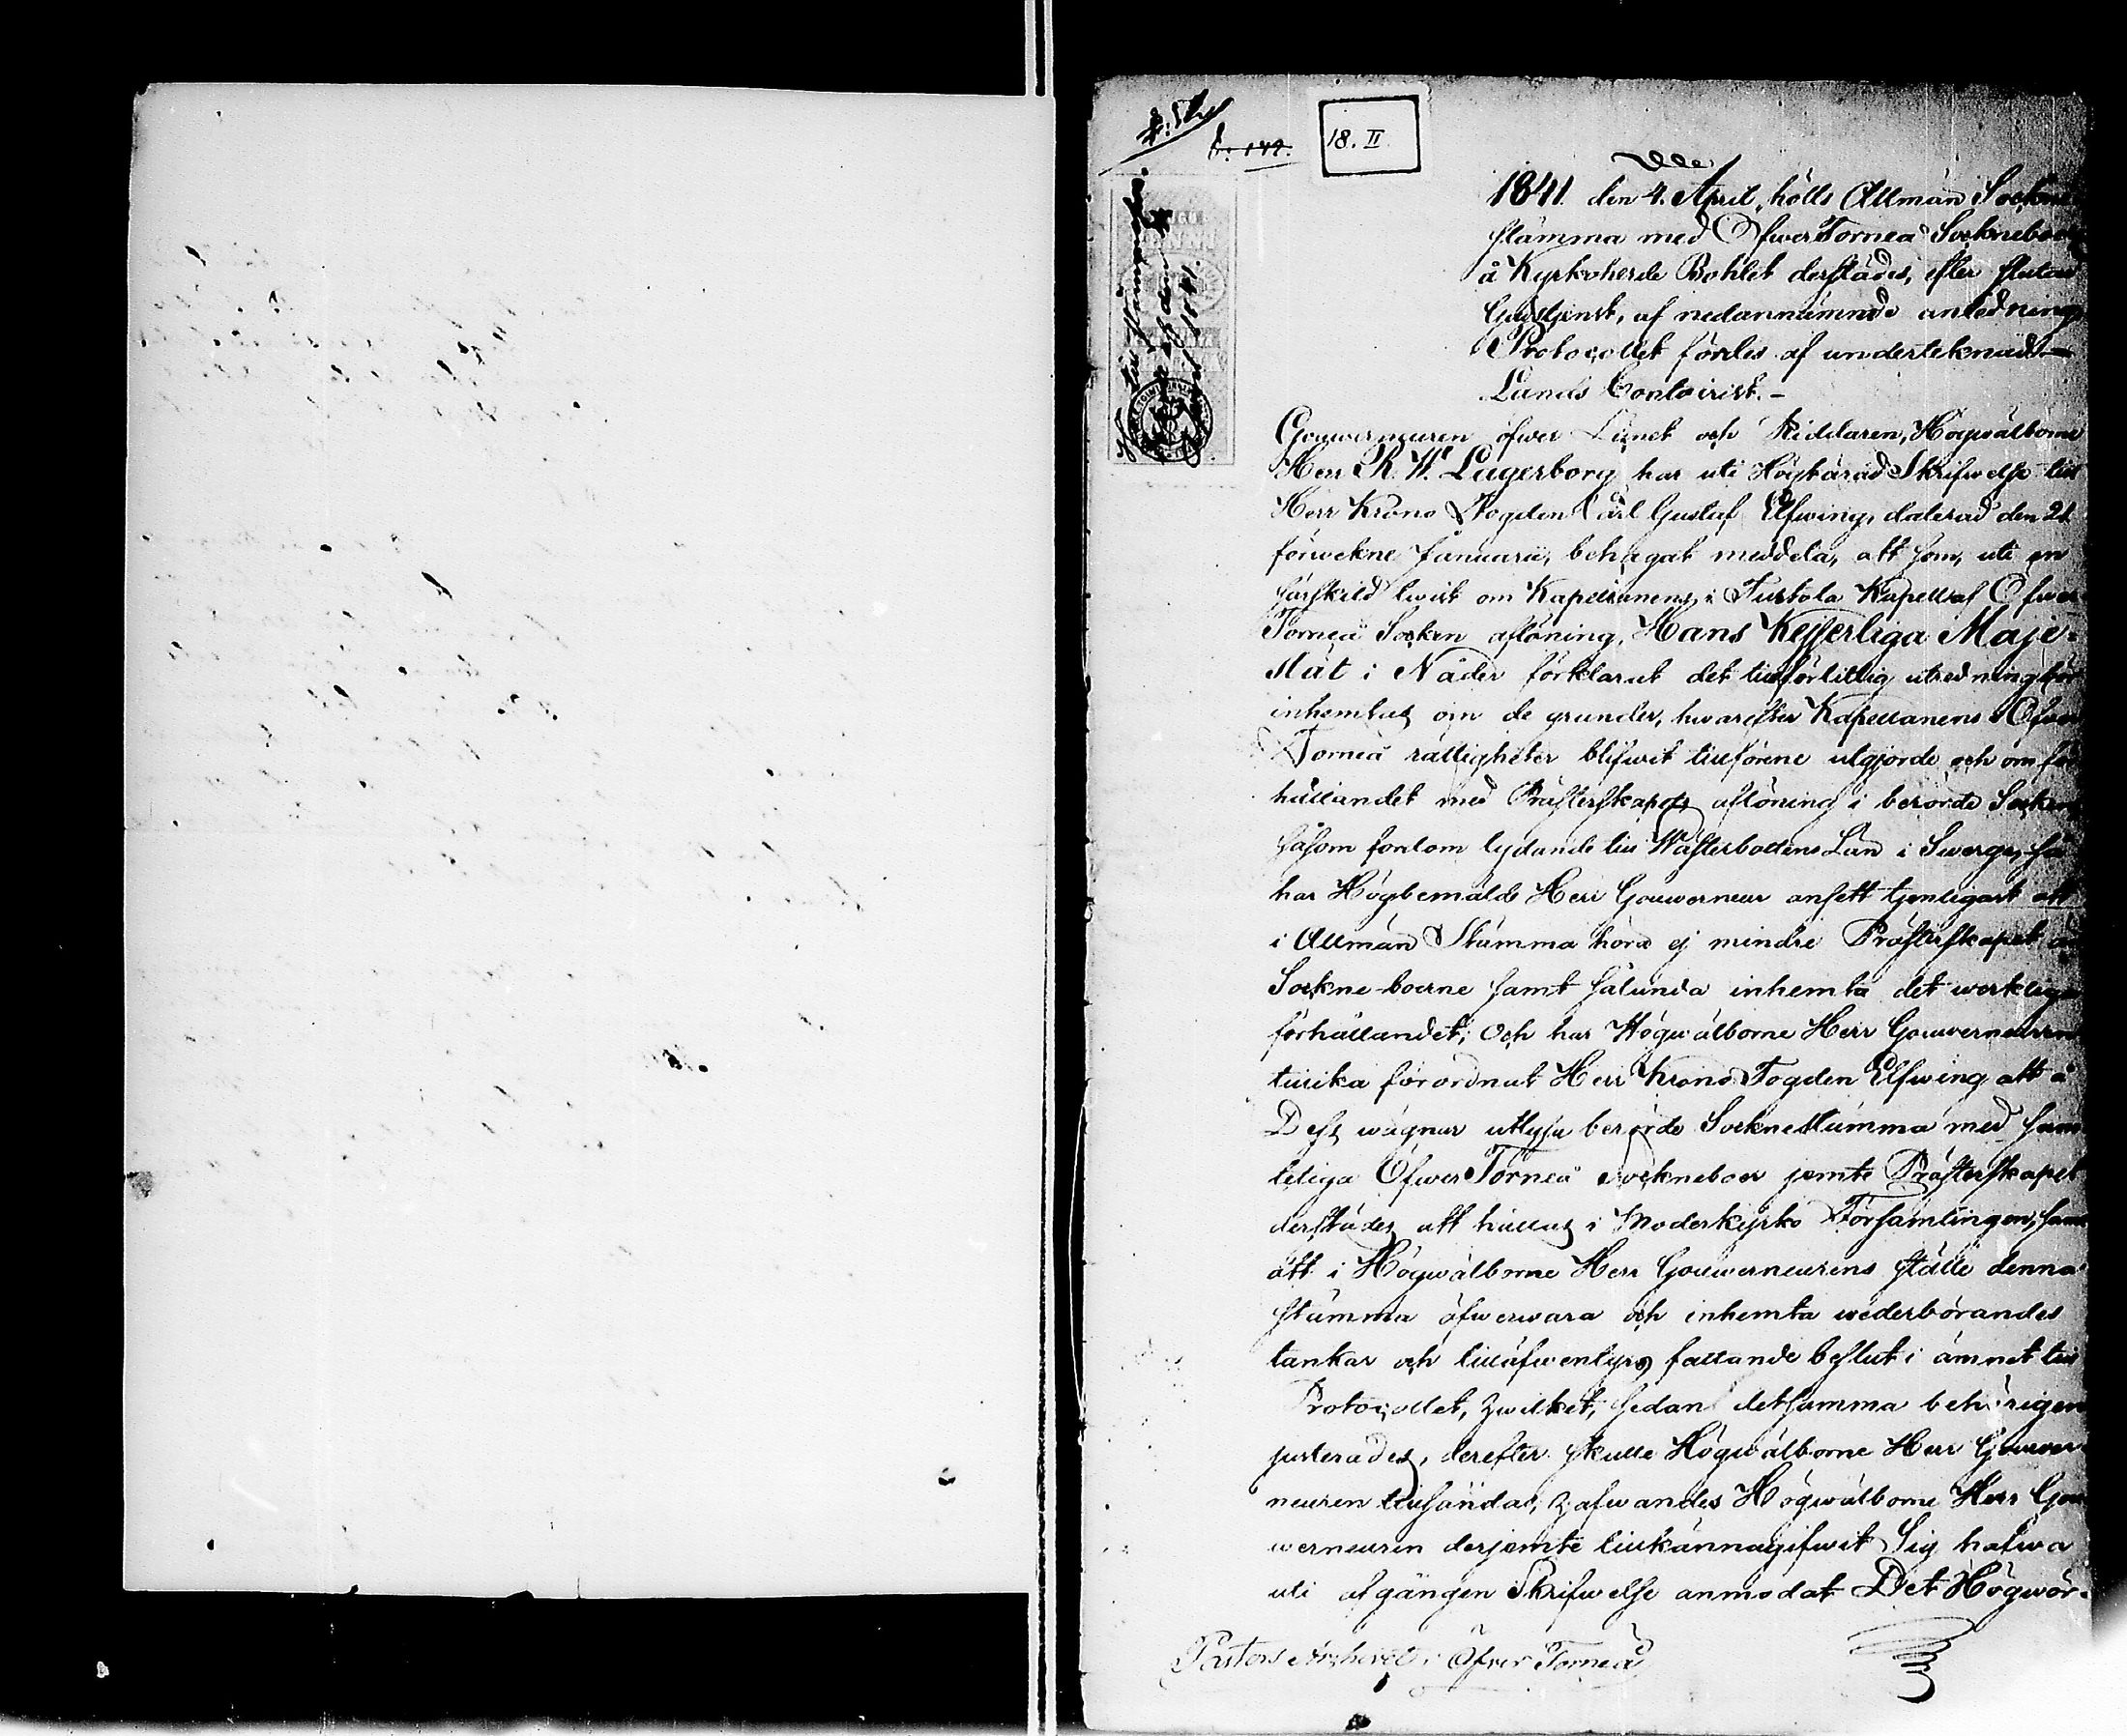 18. II
1841. den 4. April, hölls Allmän Sockne
stämma med Öfwer Torneå Socknebo
å Kyrkoherde Bohlet derstädes, efter slutad
Gudstjenst, af nedannämnde anledning,
Protocollet fördes af undertecknad
Lands Contoirist. –
Gouverneuren öfwer Länet och Riddaren, Högwälborne
Herr R. W. Lagerborg har uti Högtärad Skrifwelse till
Herr Krono Fogden Carl Gustaf Elfwing, daterad den 21
förwekne Januarii, behagat meddela, att som, uti en
särskild twist om Kapellanens i Turtola Kapell af Öfwer
Torneå Socken aflöning, Hans Kejserliga Maje-
stät i Nåder förklarat det tillförlitlig utredning bör
inhemtas om de grunder, hwarefter Kapellanens i Öfwer
Torneå rättigheter blifwit tillförene utgjorde och om för
hållandet med Prästerskapets aflöning i berörde Socken
såsom fordom lydande till Wästerbottens Län i Swerge, så
har Högbemälde Herr Gouverneur ansett tjenligast att
i Allmän Stämma höra ej mindre Prästerskapet än
Sockne-boerne samt sålunda inhemta det werkliga
förhållandet; Och har Högwälborne Herr Gouverneuren
tillika förordnat Herr Krono Fogden Elfwing att å
Dess wägnar utlysa berörde Sockne Stämma med sam
teliga Öfwer Torneå Socknebor jemte Prästerskapet
derstädes att hållas i Moderkyrko Församlingen, samt
att i Högwälborne Herr Gouverneurens ställe denna
stämma öfwerwara och inhemta wederbörandes
tankar och tilläfwentyrs fallande beslut i ämnet till
Protocollet, hwilket, sedan detsamma behörigen
justerades, derefter skulle Högwälborne Herr Gouver
neuren tillsändas, hafwandes Högwälborne Herr Gou
werneuren derjemte tillkännagifwit Sig hafwa
uti afgången Skrifwelse anmodat Det Högwör-
Pastors Archivet i Öfver Torneå